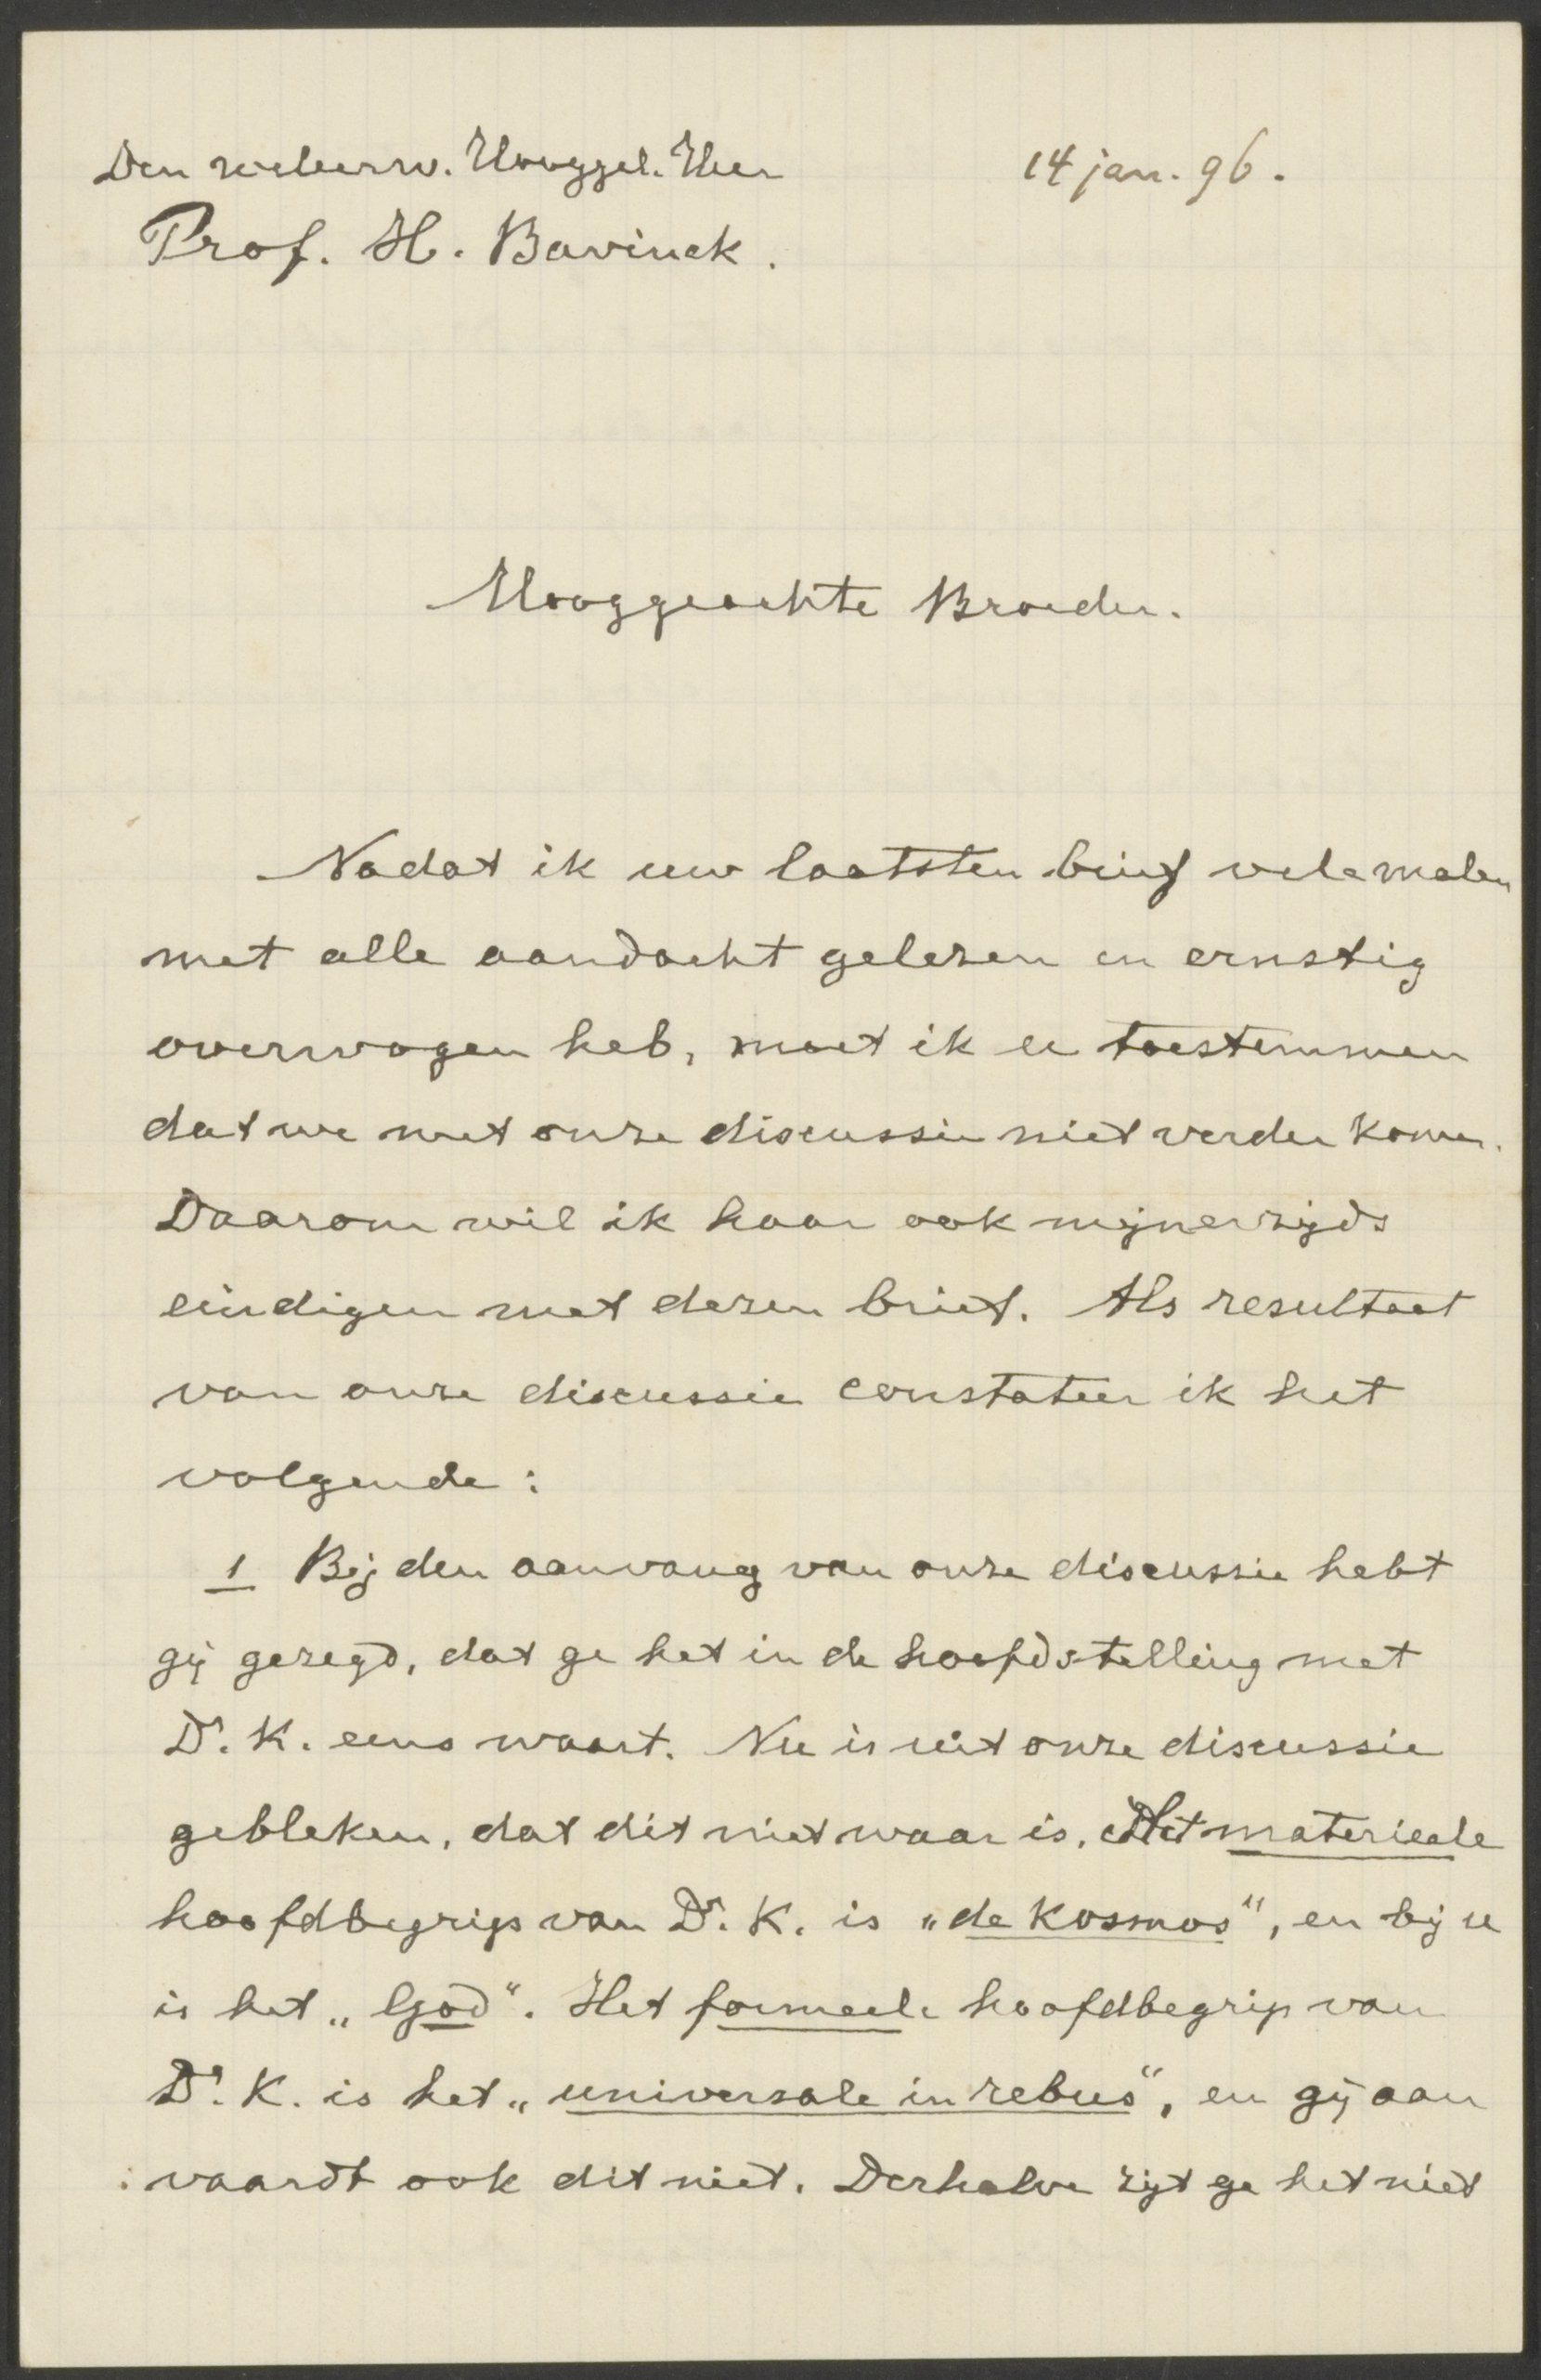 Den weleerw. Hooggel. Heer
14 jan. 96.
Prof. H. Bavinck.
Hooggeachte Broeder.
Nadat ik uw laatsten brief vele malen
met alle aandacht gelezen en ernstig
overwogen heb, moet ik u toestemmen
dat we met onze discussie niet verder komen.
Daarom wil ik haar ook mijnerzijds
eindigen met dezen brief. Als resultaat
van onze discussie constateer ik het
volgende:
1 Bij den aanvang van onze discussie hebt
gij gezegd, dat ge het in de hoofdstelling met
Dr. K. eens waart. Nu is uit onze discussie
gebleken, dat dit niet waar is. Het materieele
hoofdbegrip van Dr. K. is „de kosmos“, en bij u
is het „God“. Het formeele hoofdbegrip van
Dr. K. is het „universale in rebus“, en gij aan
vaardt ook dit niet. Derhalve zijt ge het niet